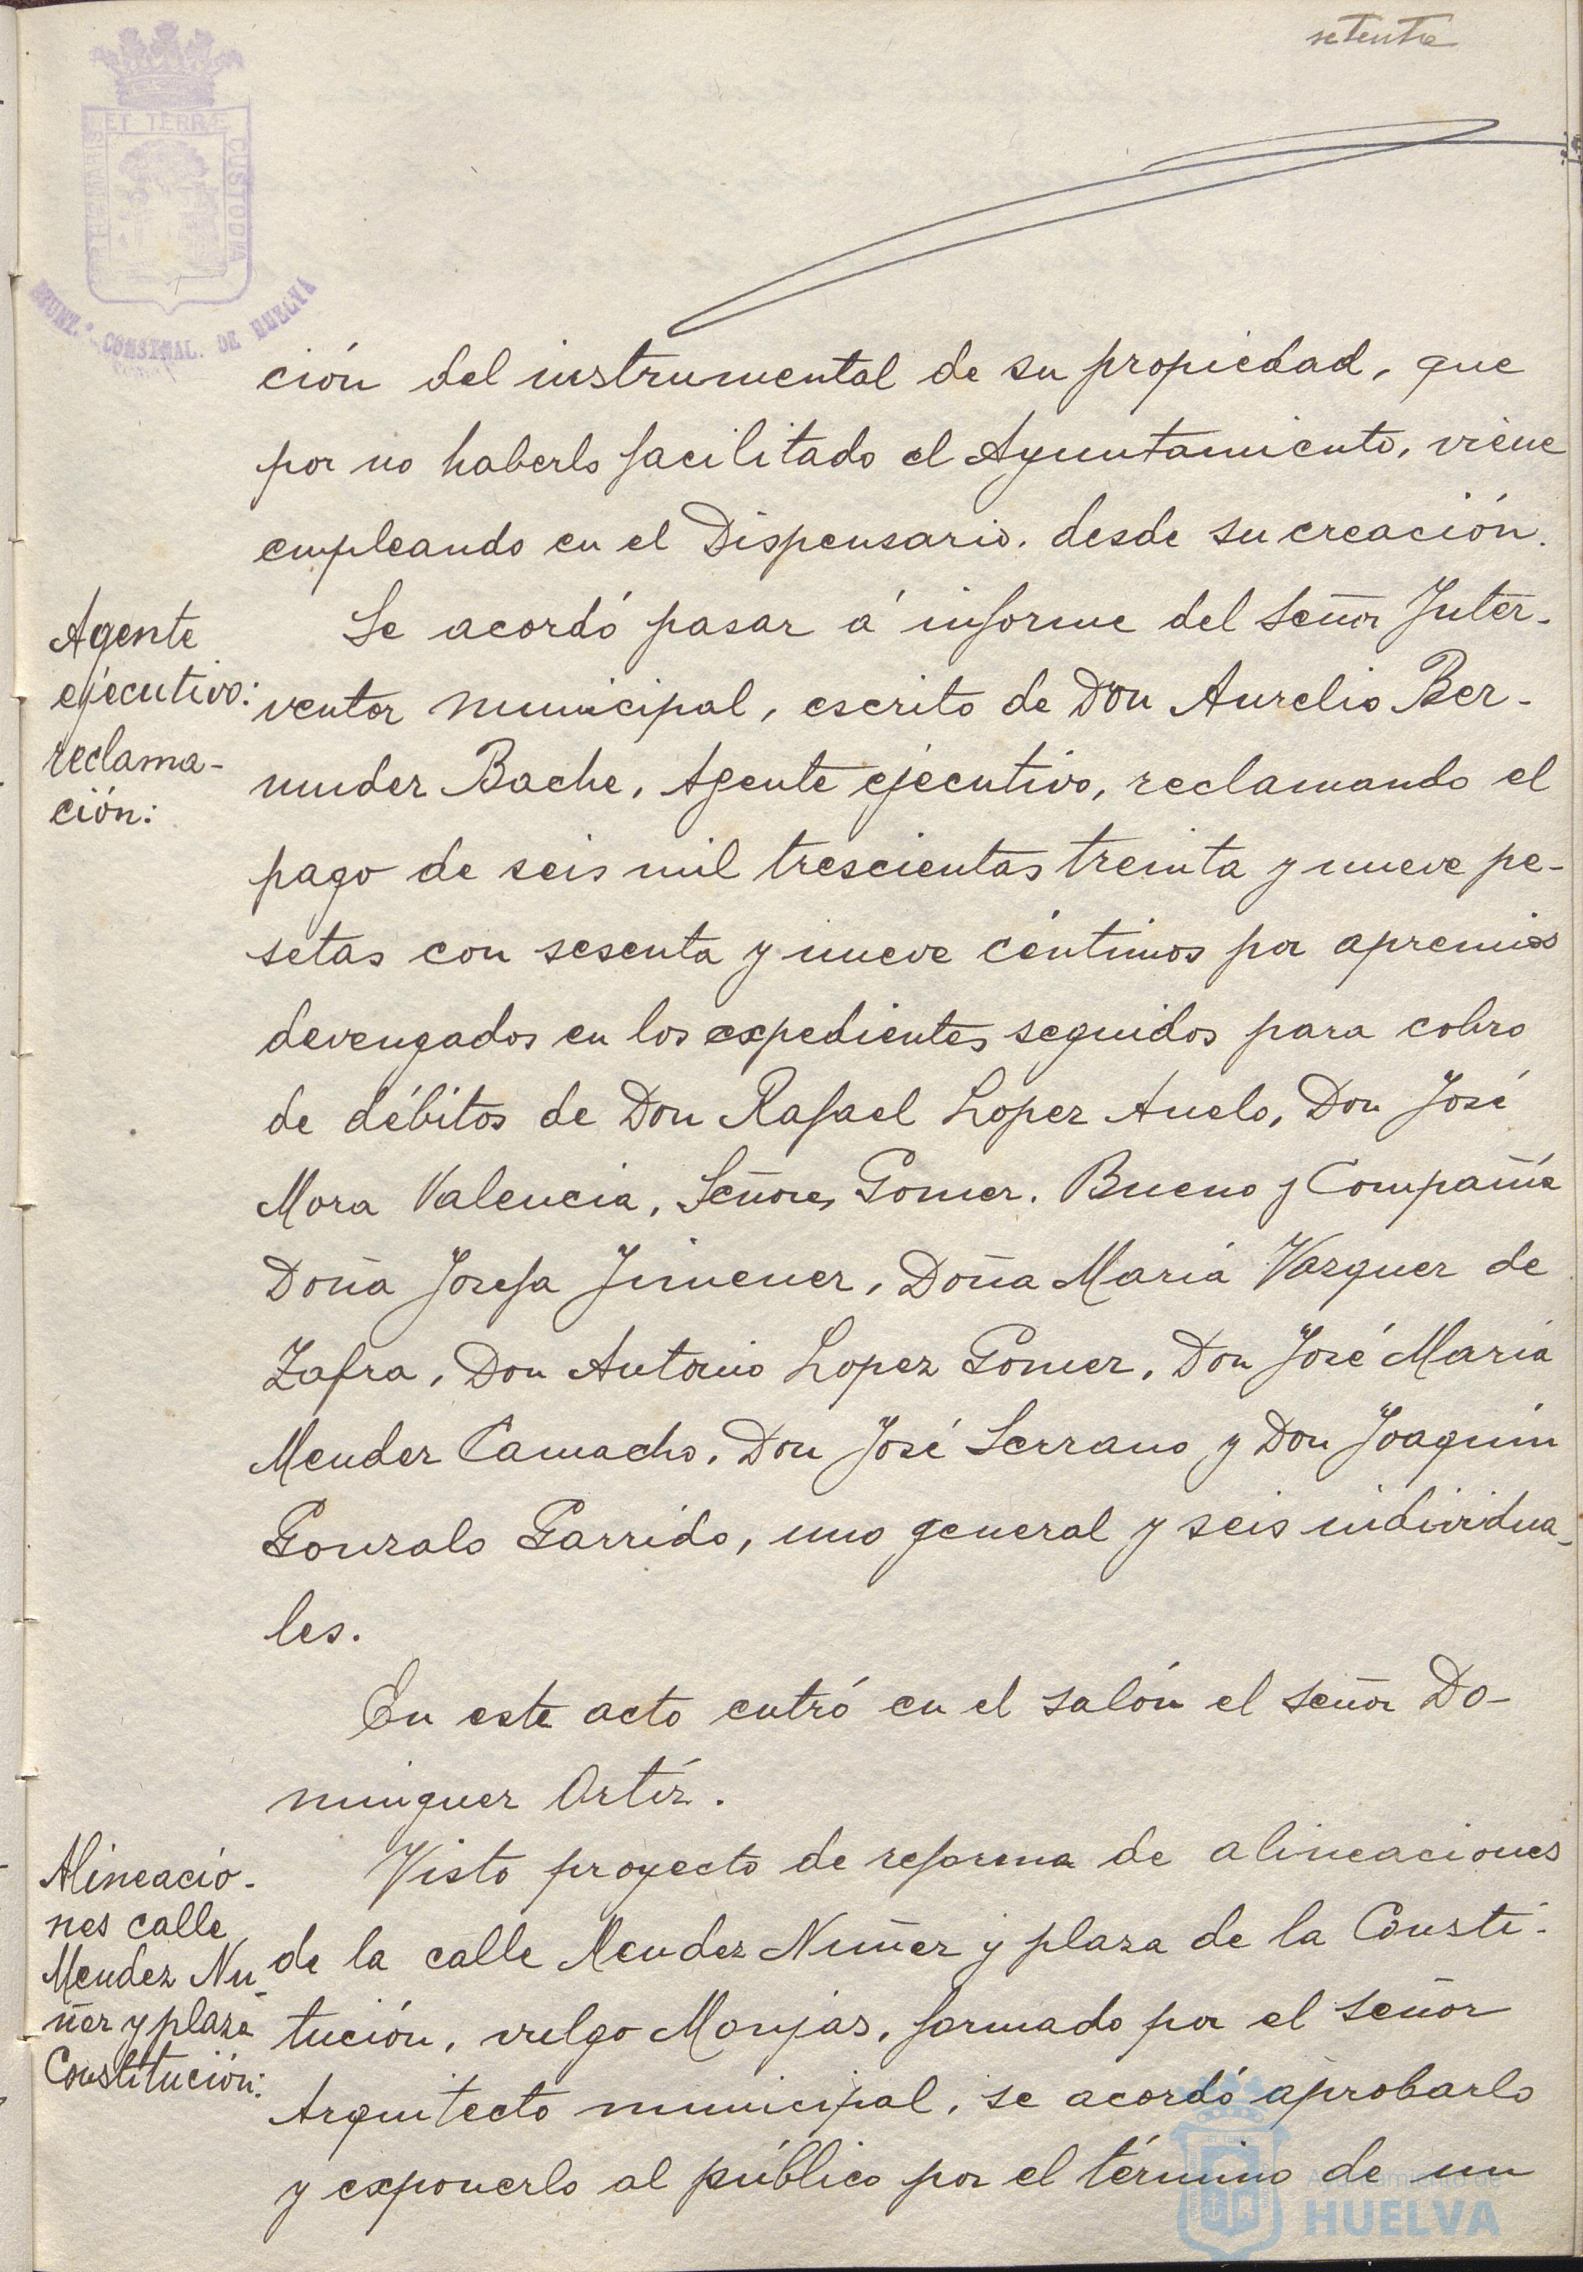 setenta
ET TERRÆ
CUSTODIA
AYUNT.º CONSTNAL. DE HUELVA
ción del instrumental de su propiedad, que
por no haberlo facilitado el Ayuntamiento, viene
empleando en el Dispensario. desde su creación.
Agente
ejecutivo:
reclama-
ción:
Se acordó pasar á informe del Señor Inter-
ventor municipal, escrito de Don Aurelio Ber-
mudez Bache, Agente ejecutivo, reclamando el
pago de seis mil trescientas treinta y nueve pe-
setas con sesenta y nueve céntimos por apremios
devengados en los expedientes seguidos para cobro
de débitos de Don Rafael Lopez Anelo, Don José
Mora Valencia, Señores Gomez, Bueno y Compañía
Doña Josefa Jimenez, Doña María Vazquez de
Zafra, Don Antonio Lopez Gomez, Don José María
Mendez Camacho, Don José Serrano y Don Joaquín
Gonzalo Garrido, uno general y seis individua-
les.
En este acto entró en el salón el señor Do-
minguez Ortíz.
Alineacio-
nes calle
Mendez Nu-
ñez y plaza
Constitución:
Visto proyecto de reforma de alineaciones
de la calle Mendez Nuñez y plaza de la Consti-
tución, vulgo Monjas, formado por el señor
Arquitecto municipal, se acordó aprobarlo
y exponerlo al público por el término de un
Ayuntamiento de
HUELVA